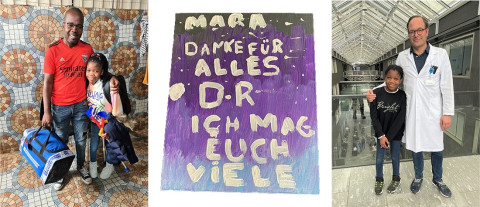 MARA
DANKE FÜR
ALLES
D.R
ICH MAG
EUCH
VIELE